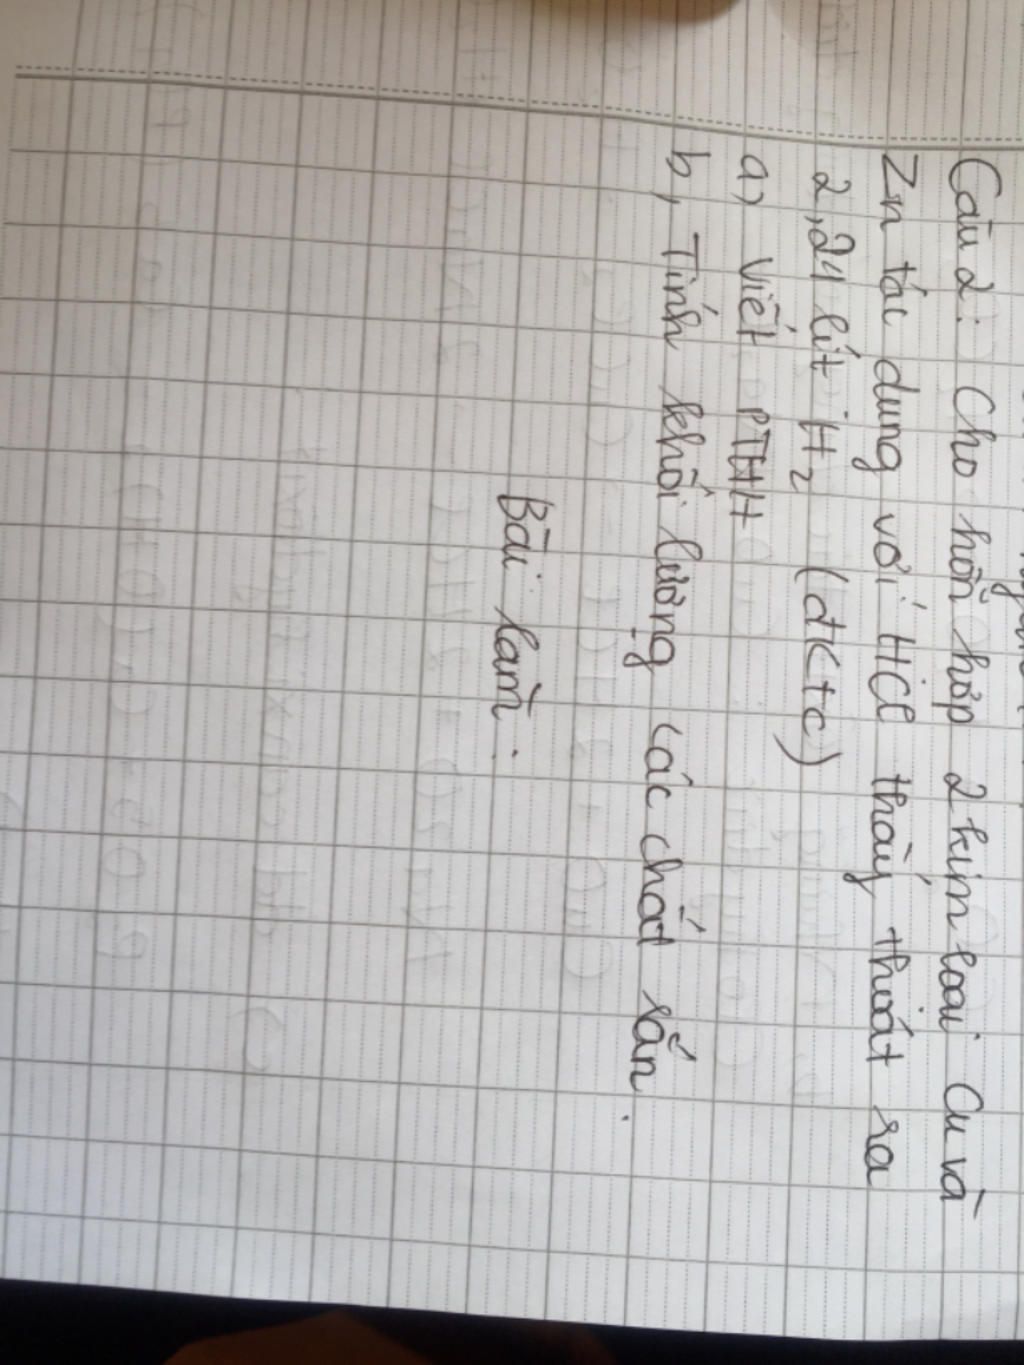 Câu 2: Cho hỗn hợp 2 kim loại Cu và
Zn tác dụng với HCl thấy thoát ra
2,24 lít H2 (đktc)
a, Viết PTHH
b, Tính khối lượng các chất rắn.
Bài làm: